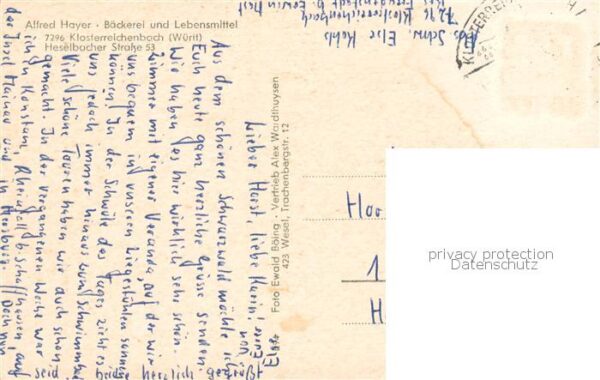 Alfred Hayer · Bäckerei und Lebensmittel
7296 Klosterreichenbach (Württ)
Heselbacher Straße 53
Foto Ewald Böing · Vertrieb Alex Wardthuysen
423 Wesel, Trachenbergstr. 12
Lieber Horst, liebe Karin,
Aus dem schönen Schwarzwald möchte ich
Euch heute ganz herzliche Grüsse senden.
Wir haben es hier wirklich sehr schön.
Zimmer mit eigener Veranda, auf der wir
uns bequem in unseren Liegestühlen sonnen
können. In der Schwüle des Tages zieht es
uns jedoch immer hinaus zum Schwimmbad.
Viel schöne Touren haben wir auch schon
gemacht. In der vergangenen Woche war
ich in Konstanz, Rheinfall b. Schaffhausen, auf
der Insel Mainau und in Meersburg. Doch nun
seid herzlich
von Eurer
Else
Else Kohls
7296 Klosterreichenbach
Hoo
1
H
privacy protection
Datenschutz